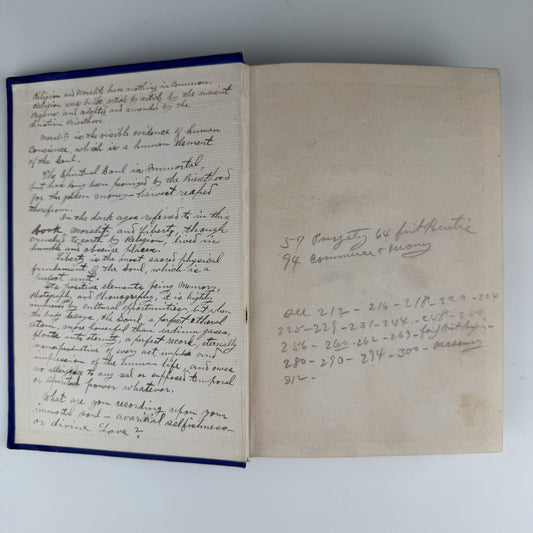 Religion and Morality have nothing in Common.
Religion was built article by article by the ancient
Pagans and adopted and amended by the
Christian Priesthood.
Morality is the visible evidence of human
Conscience, which is a human element
of the Soul.
The Spiritual Soul is Immortal,
but has long been pawned by the Priesthood
for the golden money harvest reaped
therefrom.
In the dark ages referred to in this
Book Morality and Liberty, though
crushed to earth by Religion, lived in
humble and obscure places.
Liberty is the most sacred physical
of the Soul, which is a
perfect unit.
Its positive elements being Memory,
Photography and Phonography, it is highly
improved by Cultural opportunities, but when
the body decays, the Soul, a perfect etheral
atom, more powerful than radium gases,
floats into eternity, a perfect record, eternally
reproductive of every act impulse and
impression of the human life, and owes
no allegiance to any real or supposed temporal
or power whatever.
What are you recording upon your
immortal soul - avaricial selfishness
or divine Love?
57 Purgatory 64 first
94 Commerce & Money
see 212 - 216 - 218 - 220 - 224
225 - 229 - 231 - 244 - 248 - 250
256 - 260 - 262 - 269 -
280 - 290 - 294 - 300 - Masonry
312 -